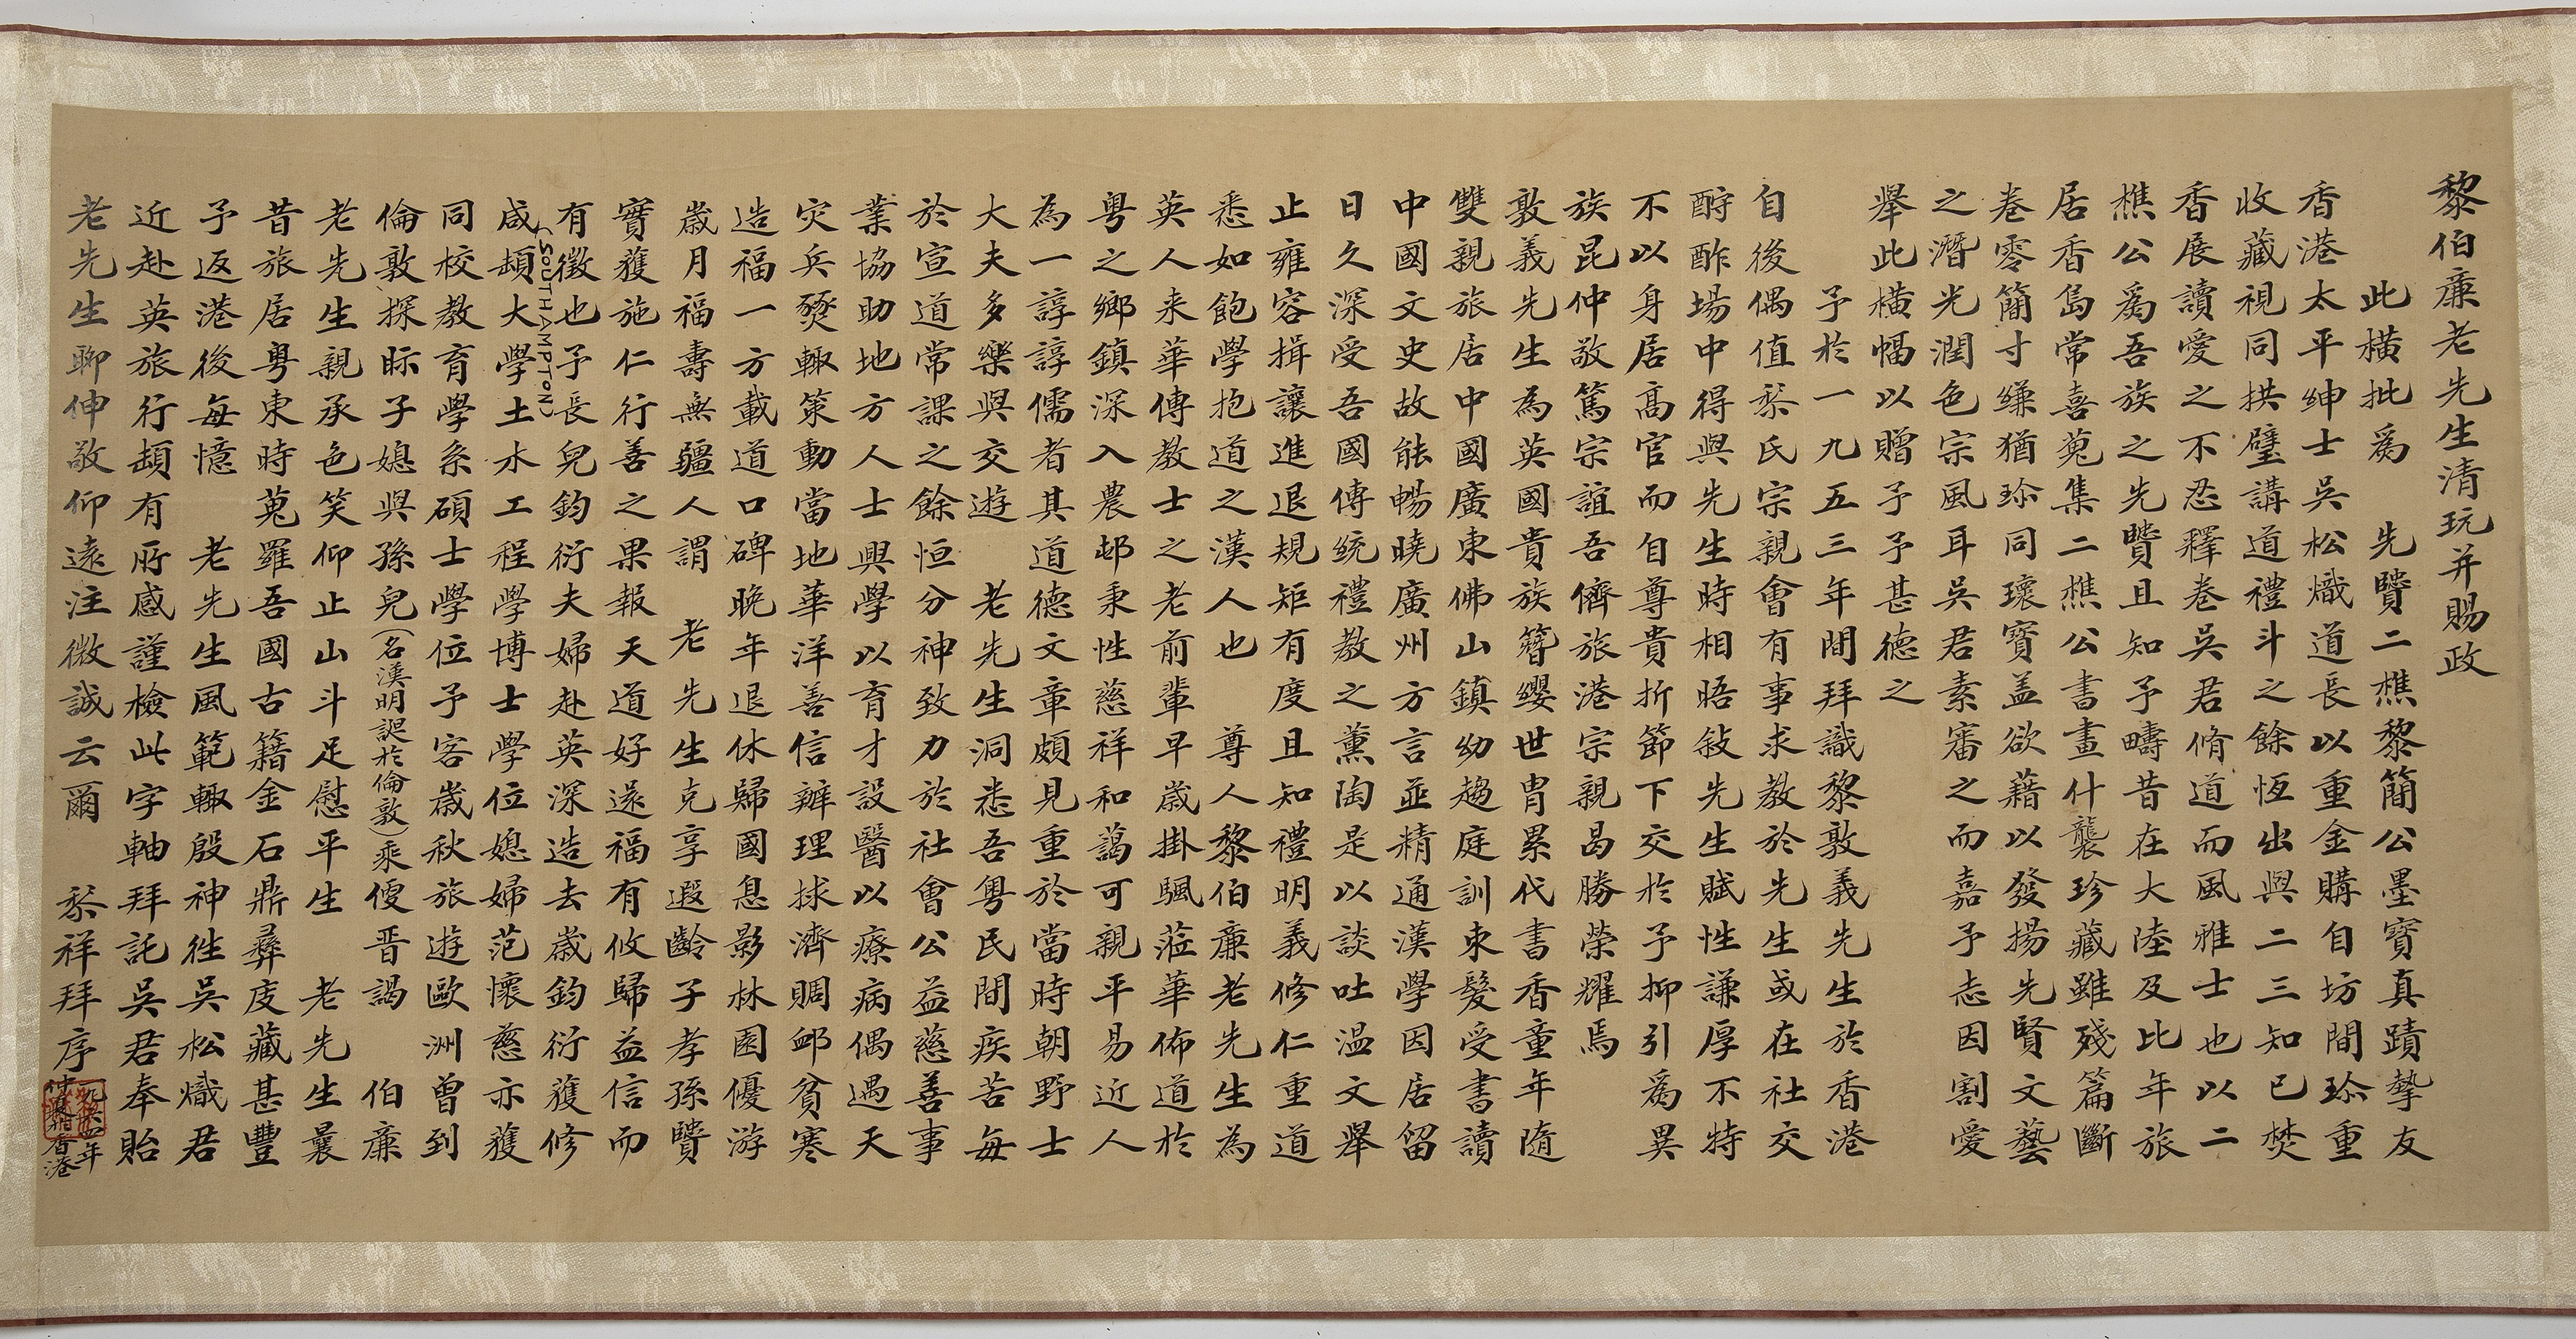 黎伯廉老先生清玩并賜政
此橫批為 先贒二樵黎簡公墨寶真蹟摯友
香港太平紳士吳松熾道長以重金購自坊間珎重
收藏視同拱璧講道禮斗之餘恆出與二三知已焚
香展讀愛之不忍釋卷吳君脩道而風雅士也以二
樵公為吾族之先贒且知予疇昔在大陸及比年旅
居香島常喜蒐集二樵公書畫什襲珍藏雖殘篇斷
卷零簡寸縑猶珎同瓌寶盖欲藉以發揚先賢文藝
之潛光潤色宗風耳吳君素審之而嘉予志因割愛
舉此橫幅以贈予予甚德之
予於一九五三年間拜識黎敦義先生於香港
自後偶值黎氏宗親會有事求教於先生或在社交
酧酢場中得與先生時相晤敍先生賦性謙厚不特
不以身居高官而自尊貴折節下交於予抑引為異
族昆仲敬篤宗誼吾儕旅港宗親曷勝榮耀焉
敦義先生為英國貴族簪纓世胄累代書香童年隨
雙親旅居中國廣東佛山鎮幼趨庭訓束髮受書讀
中國文史故能暢曉廣州方言並精通漢學因居留
日久深受吾國傳統禮教之薰陶是以談吐温文舉
止雍容揖讓進退規矩有度且知禮明義修仁重道
悉如飽學抱道之漢人也 尊人黎伯廉老先生為
英人来華傳教士之老前輩早歲掛颿蒞華佈道於
粵之鄉鎮深入農邨秉性慈祥和藹可親平易近人
為一諄諄儒者其道德文章頗見重於當時朝野士
大夫多樂與交遊 老先生洞悉吾粵民間疾苦每
於宣道常課之餘恒分神致力於社會公益慈善事
業協助地方人士興學以育才設醫以療病偶遇天
灾兵燹輙策動當地華洋善信辦理捄濟賙卹貧寒
造福一方載道口碑晚年退休歸國息影林園優游
歲月福壽無疆人謂 老先生克享遐齡子孝孫贒
寶獲施仁行善之果報天道好還福有攸歸益信而
有徵也予長兒鈞衍夫婦赴英深造去歲鈞衍獲修
咸頓(SOUTHAMPTON)大學土木工程學博士學位媳婦范懷慈亦獲
同校教育學系碩士學位予客歲秋旅遊歐洲曾到
倫敦探眎子媳與孫兒(名漢明誕於倫敦)乘便晋謁 伯廉
老先生親承色笑仰止山斗足慰平生 老先生曩
昔旅居粵東時蒐羅吾國古籍金石鼎彝庋藏甚豐
予返港後每憶 老先生風範輙殷神往吳松熾君
近赴英旅行頡有所感謹檢此字軸拜託吳君奉貽
老先生聊伸敬仰遠注微誠云爾 黎祥拜序